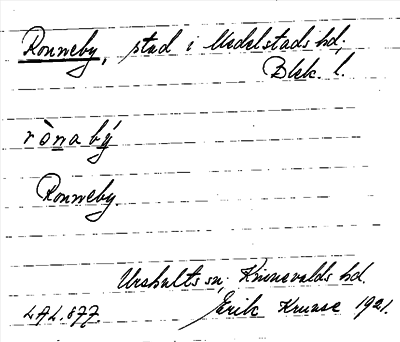 Ronneby, stad i Medelstads hd,
Blek. l.
rònabý
Ronneby.
Urshults sn, Kinnevalds hd.
LAL.877. Erik Kruuse 1921.